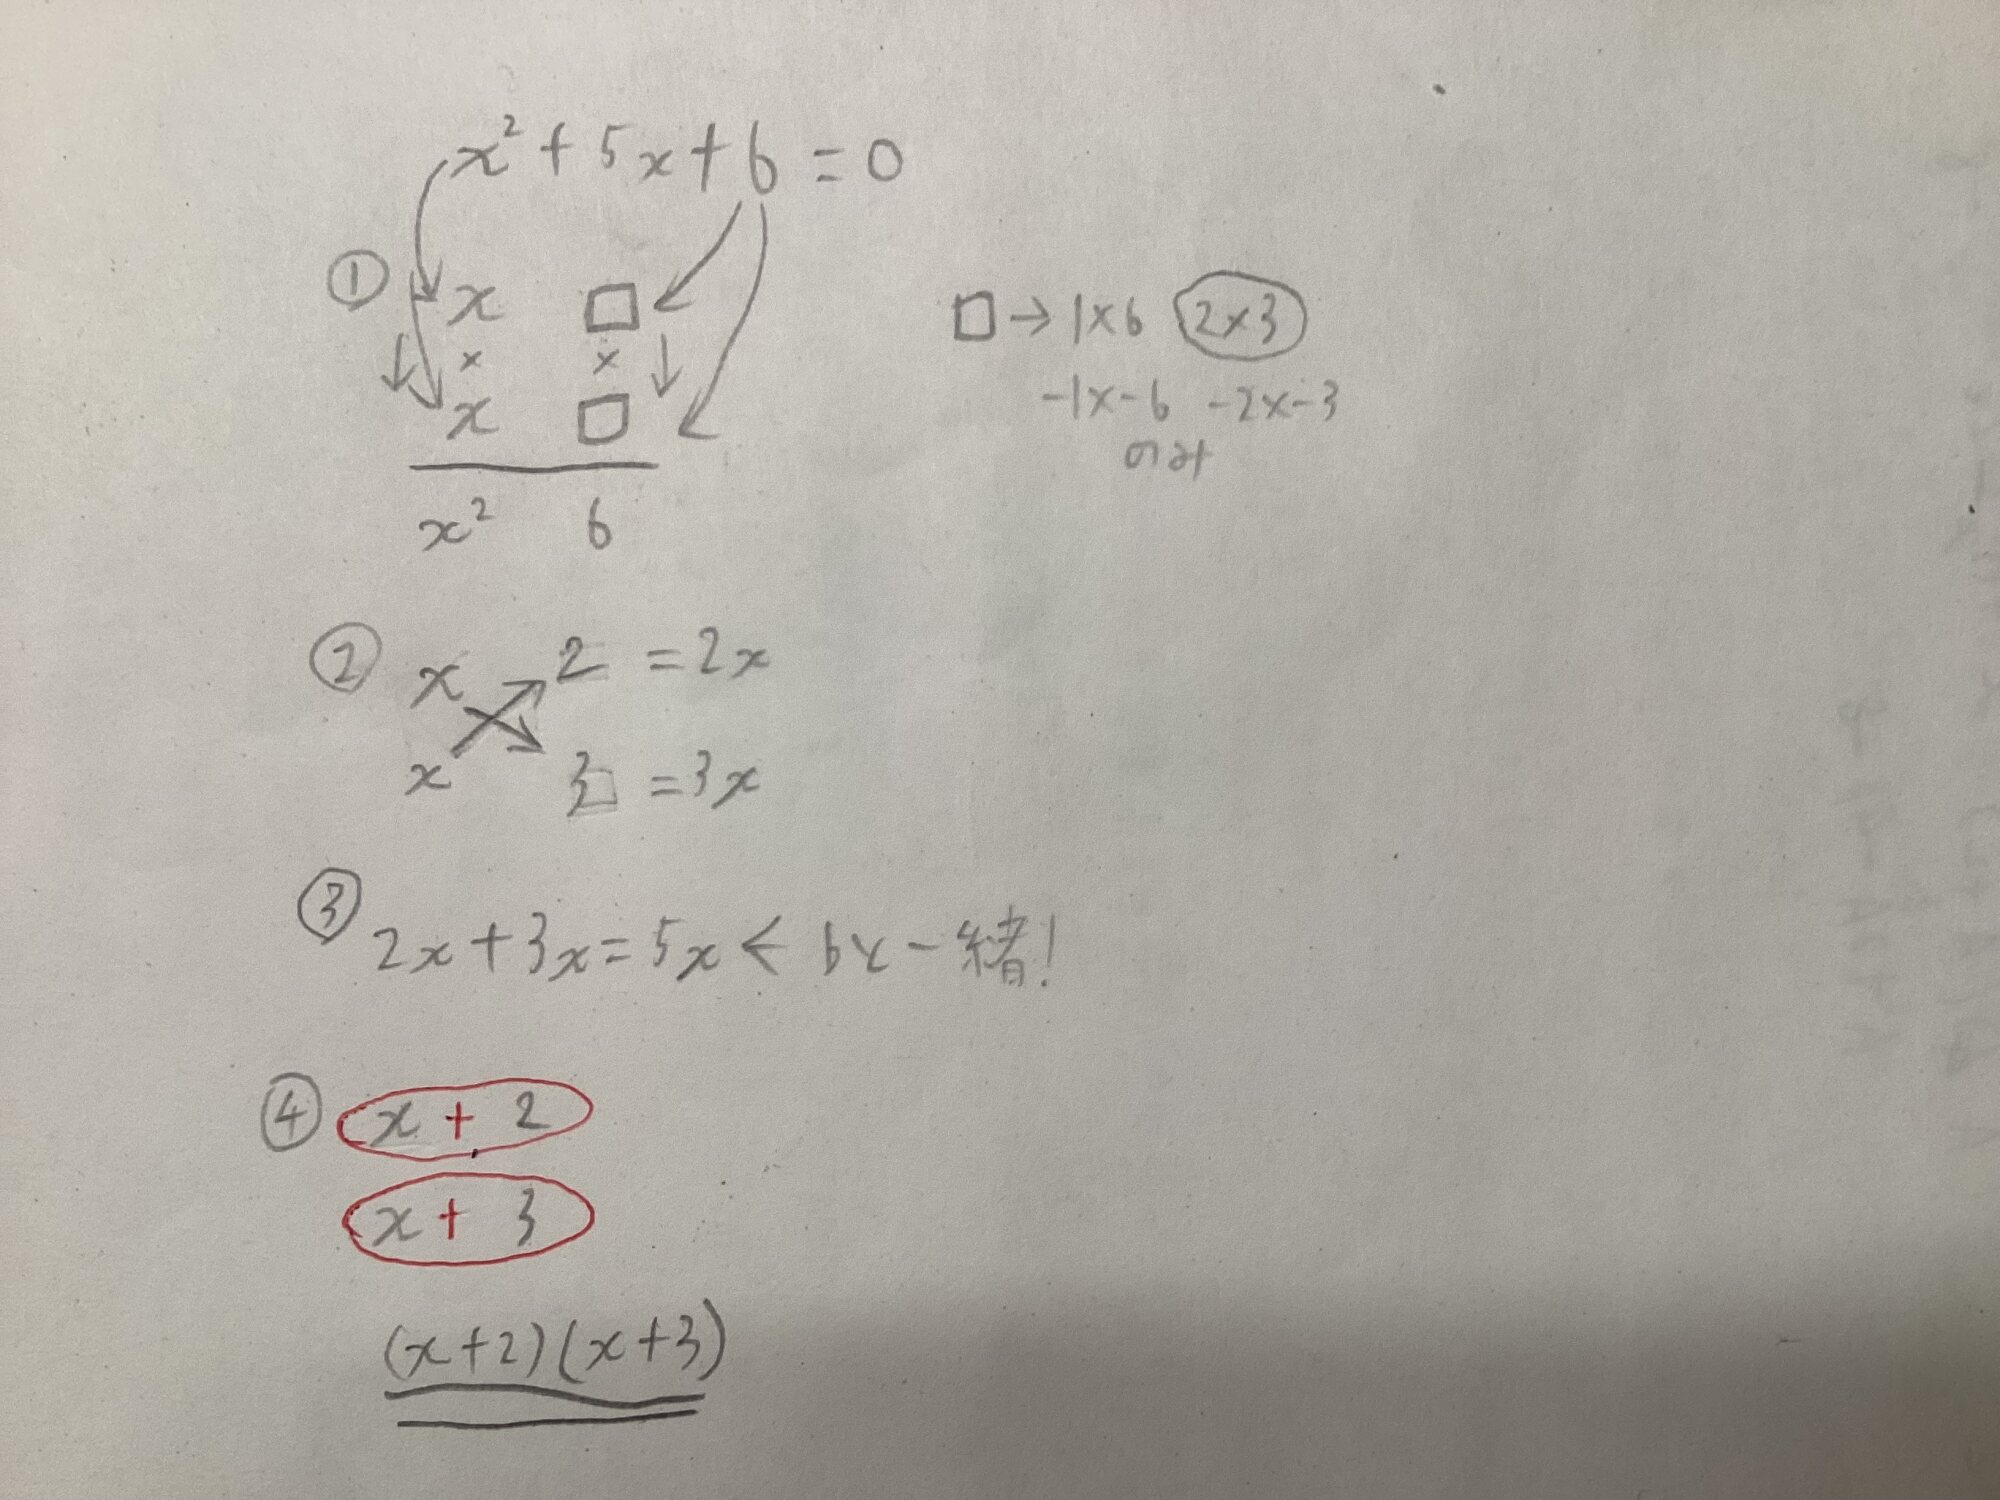 x²+5x+6=0
① x □
× ×
x □
x² 6
□→1×6 2×3
-1×-6 -2×-3
② x 2 =2x
x 3 =3x
③ 2x+3x=5x← bx一緒!
④ x + 2
x + 3
(x+2)(x+3)